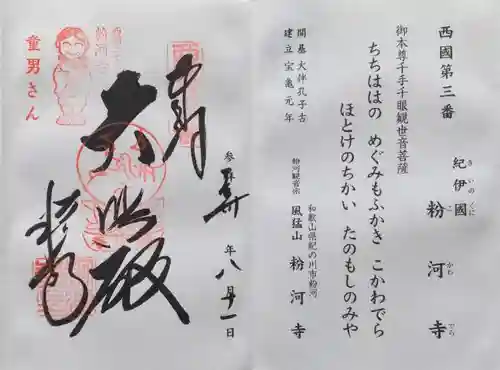 西國第三番
紀伊國 粉河寺
き いの くに こ かわ でら
御本尊千手千眼観世音菩薩
ちちははの めぐみもふかき こかわでら
ほとけのちかい たのもしのみや
開基 大伴孔子古
建立 宝亀元年
粉河観音宗
和歌山県紀の川市粉河
風猛山 粉河寺
奉拝
大悲殿
粉河寺
年八月十一日
童男さん